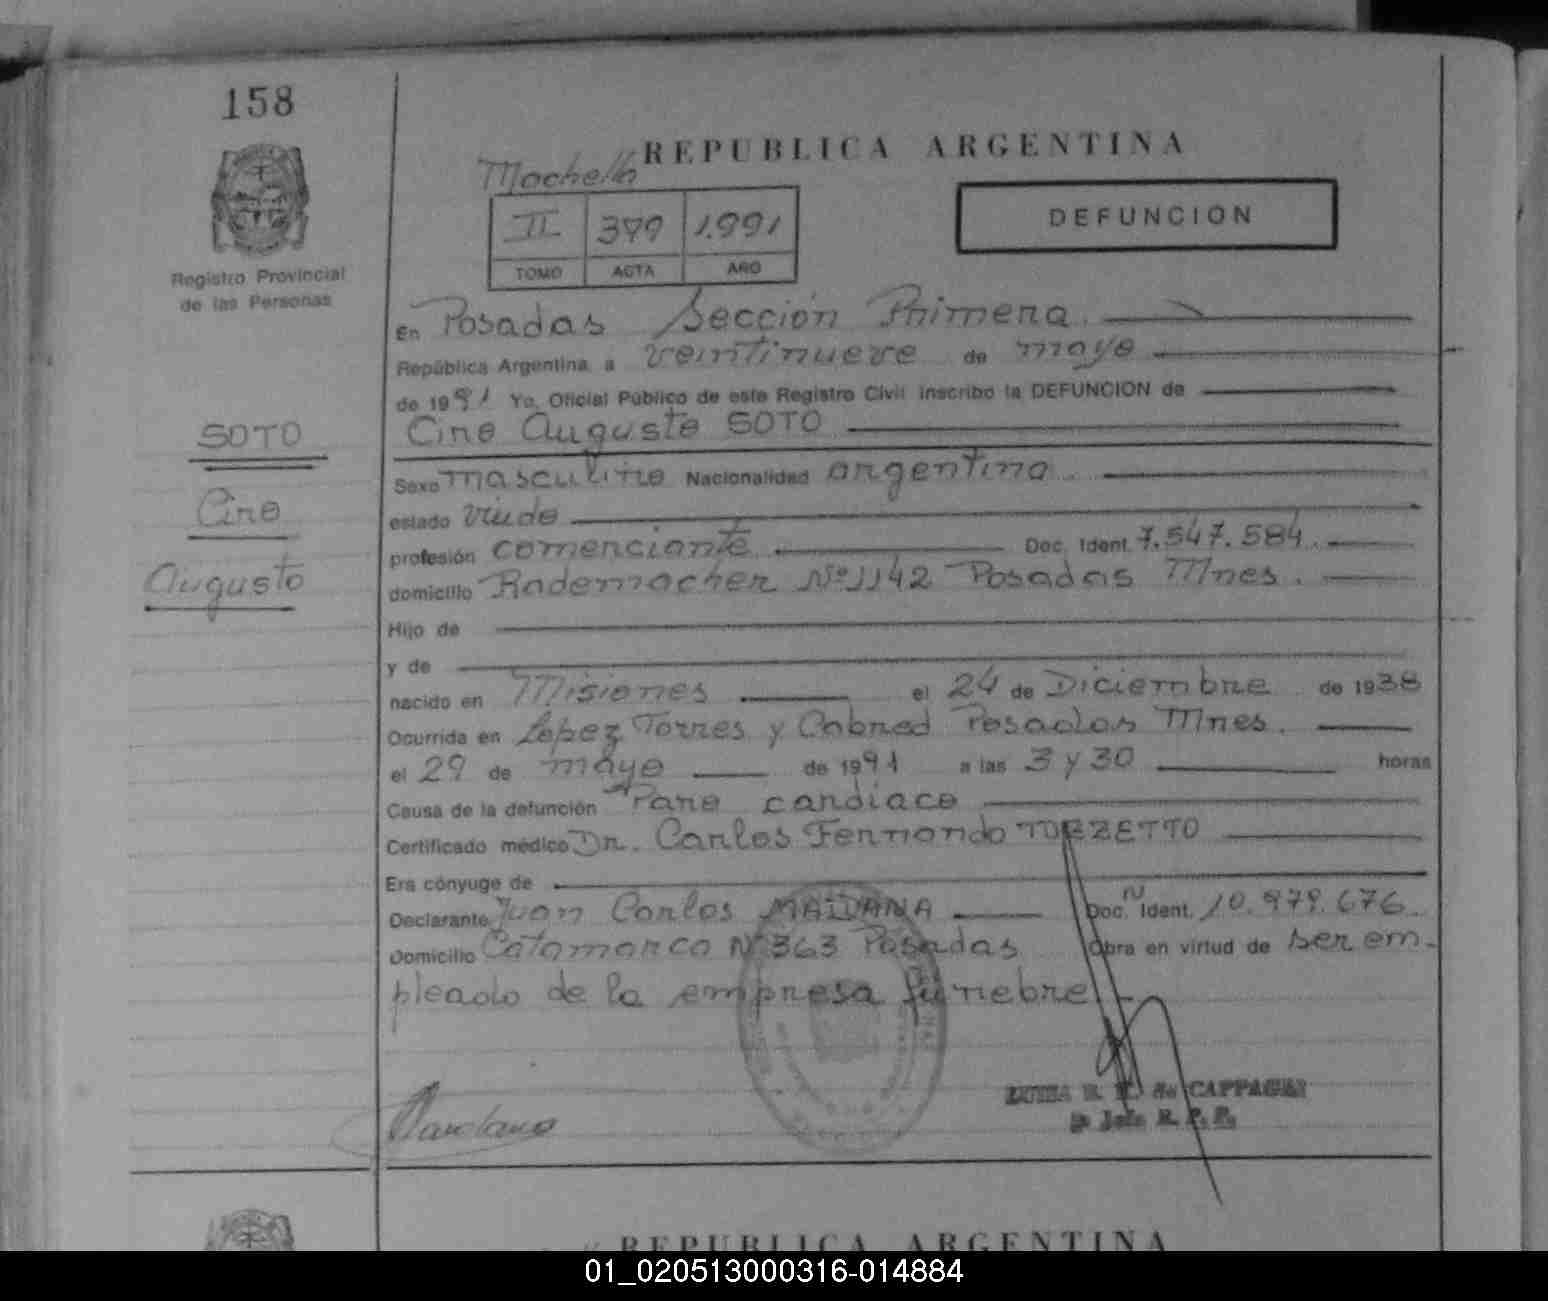 158
REPUBLICA ARGENTINA
II 379 1.991
TOMO ACTA AÑO
DEFUNCION
Registro Provincial
de las Personas
En Posadas Sección Primera.
República Argentina, a veintinueve de mayo
de 1991 Yo, Oficial Público de este Registro Civil inscribo la DEFUNCION de
SOTO
Ciro Augusto SOTO
Sexo masculino Nacionalidad argentina.
Ciro
estado viudo
profesión comerciante Doc. Ident. 7.547.584.
Augusto
domicilio Rademacher Nº 1142 Posadas Mnes.
Hijo de
y de
nacido en Misiones el 24 de Diciembre de 1938
Ocurrida en López Torres y Cabred Posadas Mnes.
el 29 de mayo de 1991 a las 3 y 30 horas
Causa de la defunción Paro cardíaco
Certificado médico Dr. Carlos Fernando
Era cónyuge de
Declarante Juan Carlos MAIDANA Doc. N Ident. 10.979.676.
Domicilio Catamarca Nº 363 Posadas Obra en virtud de ser em-
pleado de la empresa fúnebre.-
de CAPPAGLI
Jefe R. P. P.
REPUBLICA ARGENTINA
01_020513000316-014884